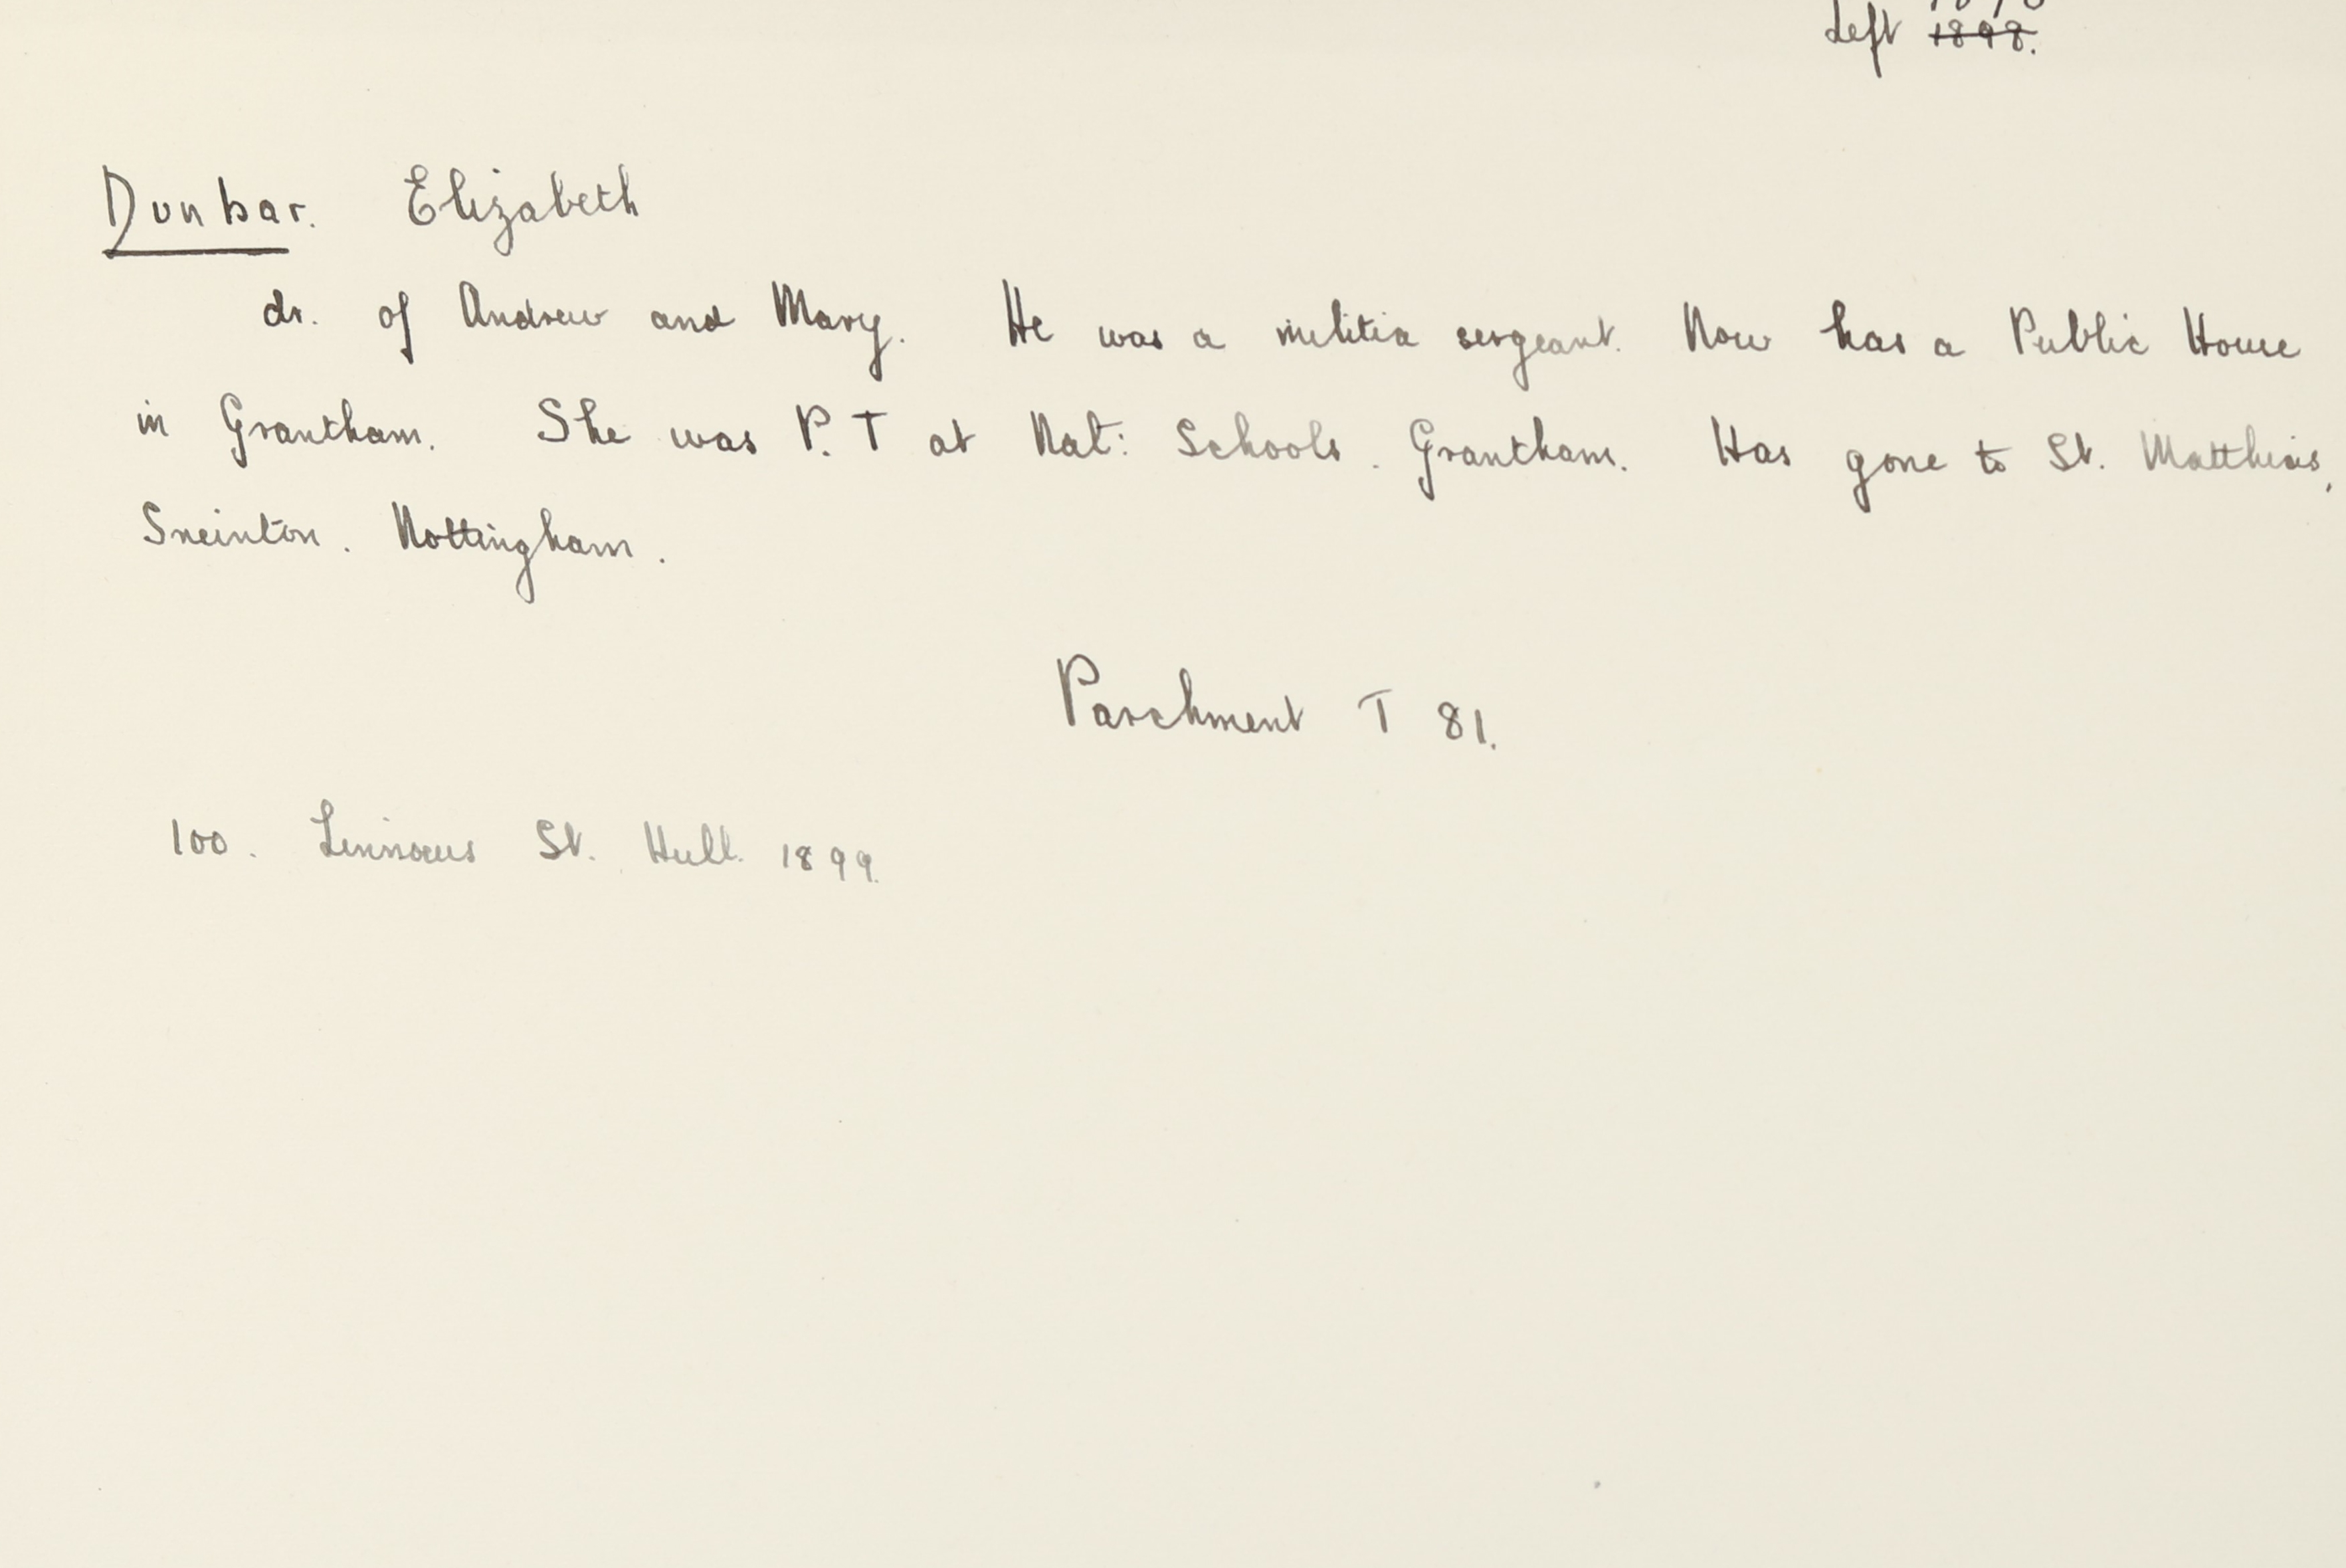 Left 1898.
Dunbar. Elizabeth
dr. of Andrew and Mary. He was a militia sergeant. Now has a Public House
in Grantham. She was P. T at Nat: Schools. Grantham. Has gone to St. Matthias,
Sneinton. Nottingham.
Parchment T 81.
100. Linnaeus St. Hull. 1899.